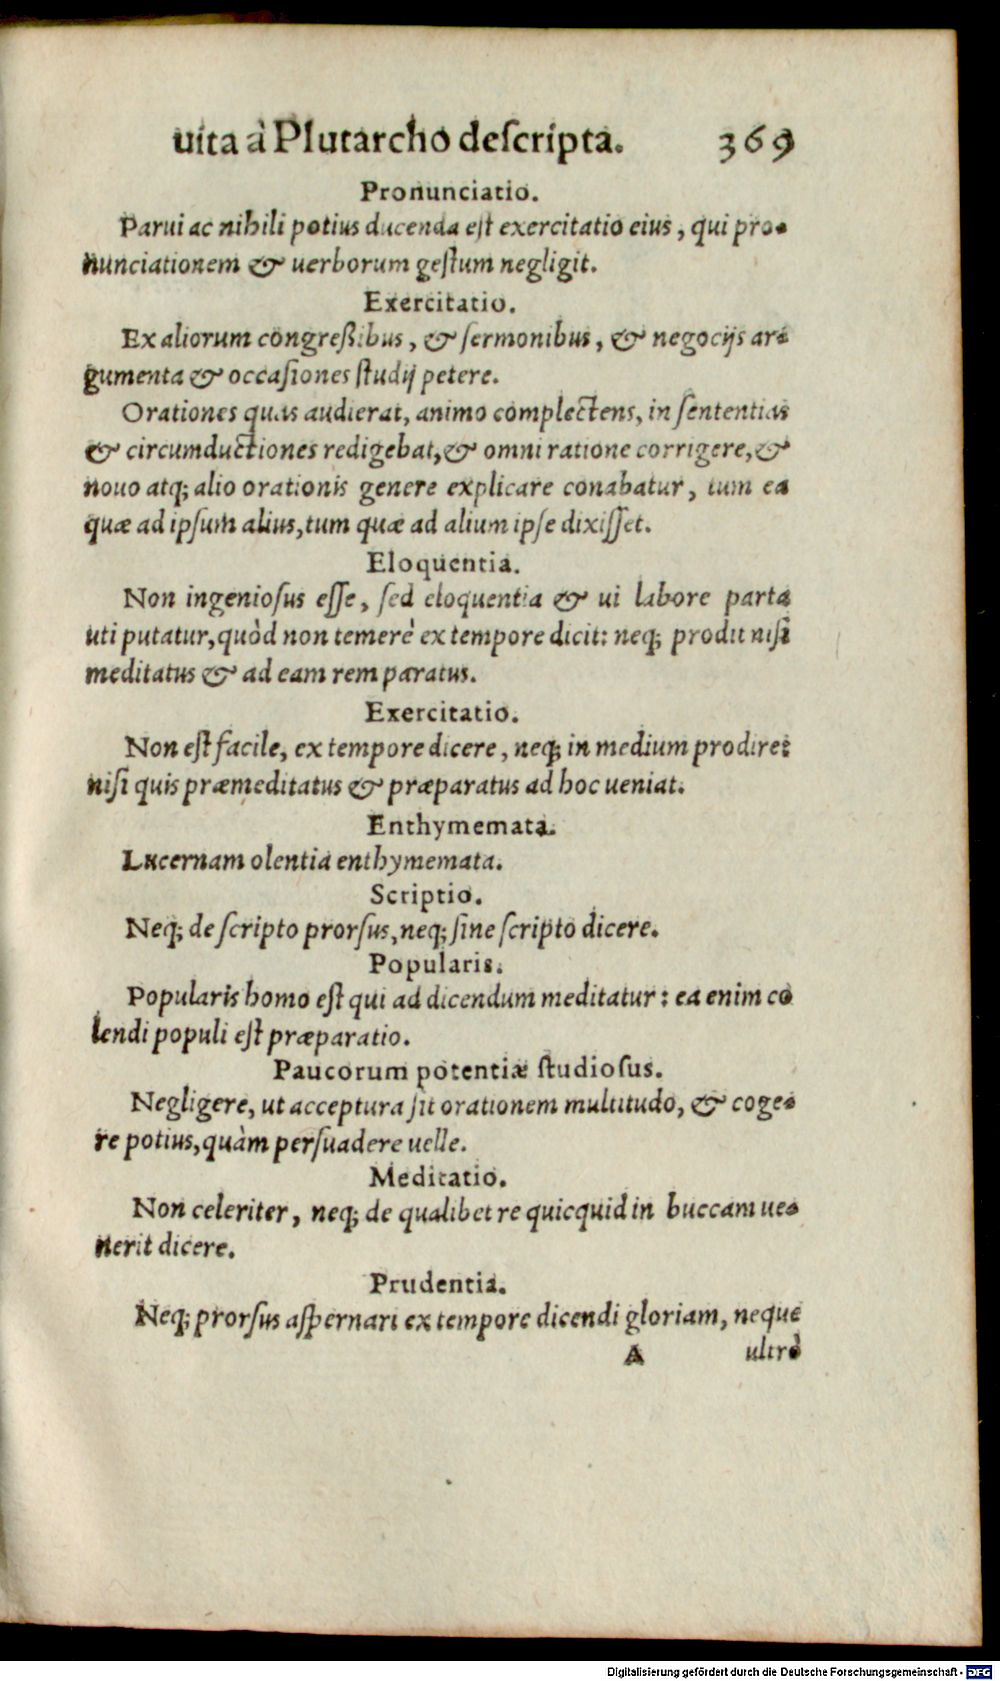 uita à Plutarcho descripta. 369
Pronunciatio.
Parui ac nihili potius ducenda est exercitatio eius, qui pro-
nunciationem & uerborum gestum negligit.
Exercitatio.
Ex aliorum congreßibus, & sermonibus, & negocijs ar-
gumenta & occasiones studij petere.
Orationes quas audierat, animo complectens, in sententias
& circumductiones redigebat, & omni ratione corrigere, &
nouo atq; alio orationis genere explicare conabatur, tum ea
quæ ad ipsum alius, tum quæ ad alium ipse dixisset.
Eloquentia.
Non ingeniosus esse, sed eloquentia & ui labore parta
uti putatur, quòd non temerè ex tempore dicit: neq; prodit nisi
meditatus & ad eam rem paratus.
Exercitatio.
Non est facile, ex tempore dicere, neq; in medium prodire:
nisi quis præmeditatus & præparatus ad hoc ueniat.
Enthymemata.
Lucernam olentia enthymemata.
Scriptio.
Neq; de scripto prorsus, neq; sine scripto dicere.
Popularis.
Popularis homo est qui ad dicendum meditatur: ea enim co
lendi populi est præparatio.
Paucorum potentiæ studiosus.
Negligere, ut acceptura sit orationem multitudo, & coge-
re potius, quàm persuadere uelle.
Meditatio.
Non celeriter, neq; de qualibet re quicquid in buccam ue-
nerit dicere.
Prudentia.
Neq; prorsus aspernari ex tempore dicendi gloriam, neque
A ultrò
Digitalisierung gefördert durch die Deutsche Forschungsgemeinschaft - DFG